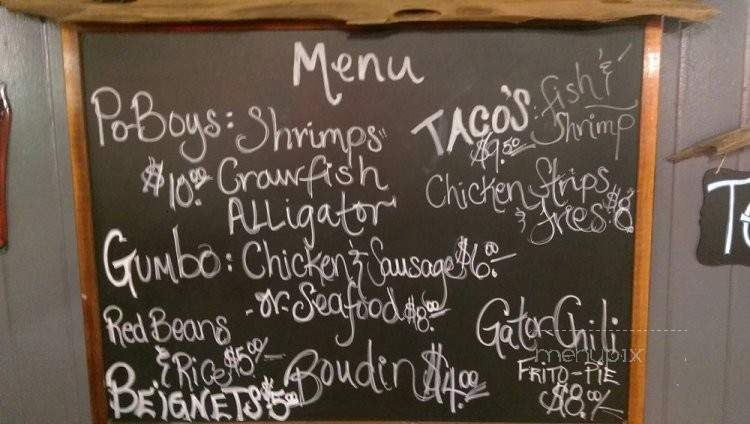 Menu
Po-Boys: Shrimps
$10.00 Crawfish
Alligator
TACO'S: fish &
$9.50 Shrimp
Chicken Strips
& fries $8
Gumbo: Chicken & Sausage $6.00
-or- Seafood $8.00
Red Beans
& Rice $5.00
BEIGNETS $5.00
Boudin $4.00
Gator Chili
FRITO-PIE
$8.00
menupix